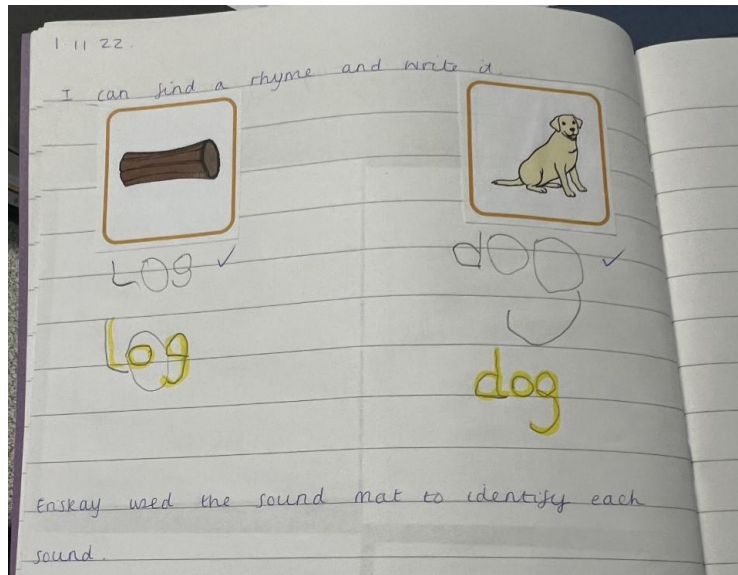 1.11 22.
I can find a rhyme and write it.
Log dog
log dog
Enskay used the sound mat to identify each
sound.